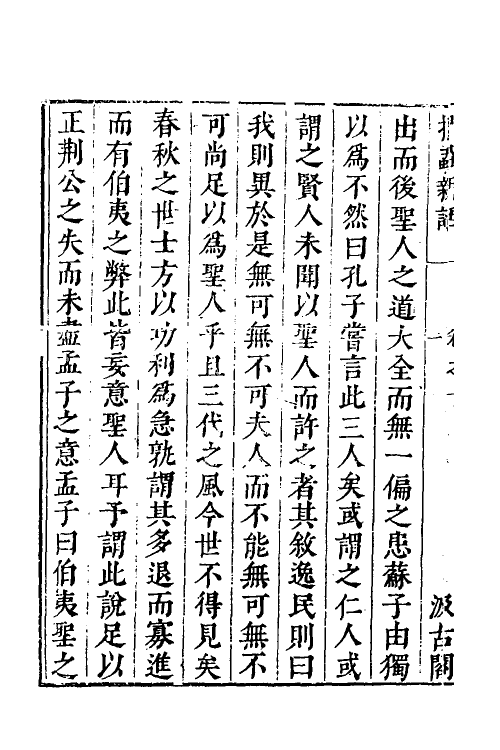 捫蝨新話 卷之十 汲古閣
出而後聖人之道大全而無一偏之患蘇子由獨
以爲不然曰孔子嘗言此三人矣或謂之仁人或
謂之賢人未聞以聖人而許之者其敘逸民則曰
我則異於是無可無不可夫人而不能無可無不
可尚足以爲聖人乎且三代之風今世不得見矣
春秋之世士方以功利爲急孰謂其多退而寡進
而有伯夷之弊此皆妄意聖人耳予謂此說足以
正荆公之失而未盡孟子之意孟子曰伯夷聖之